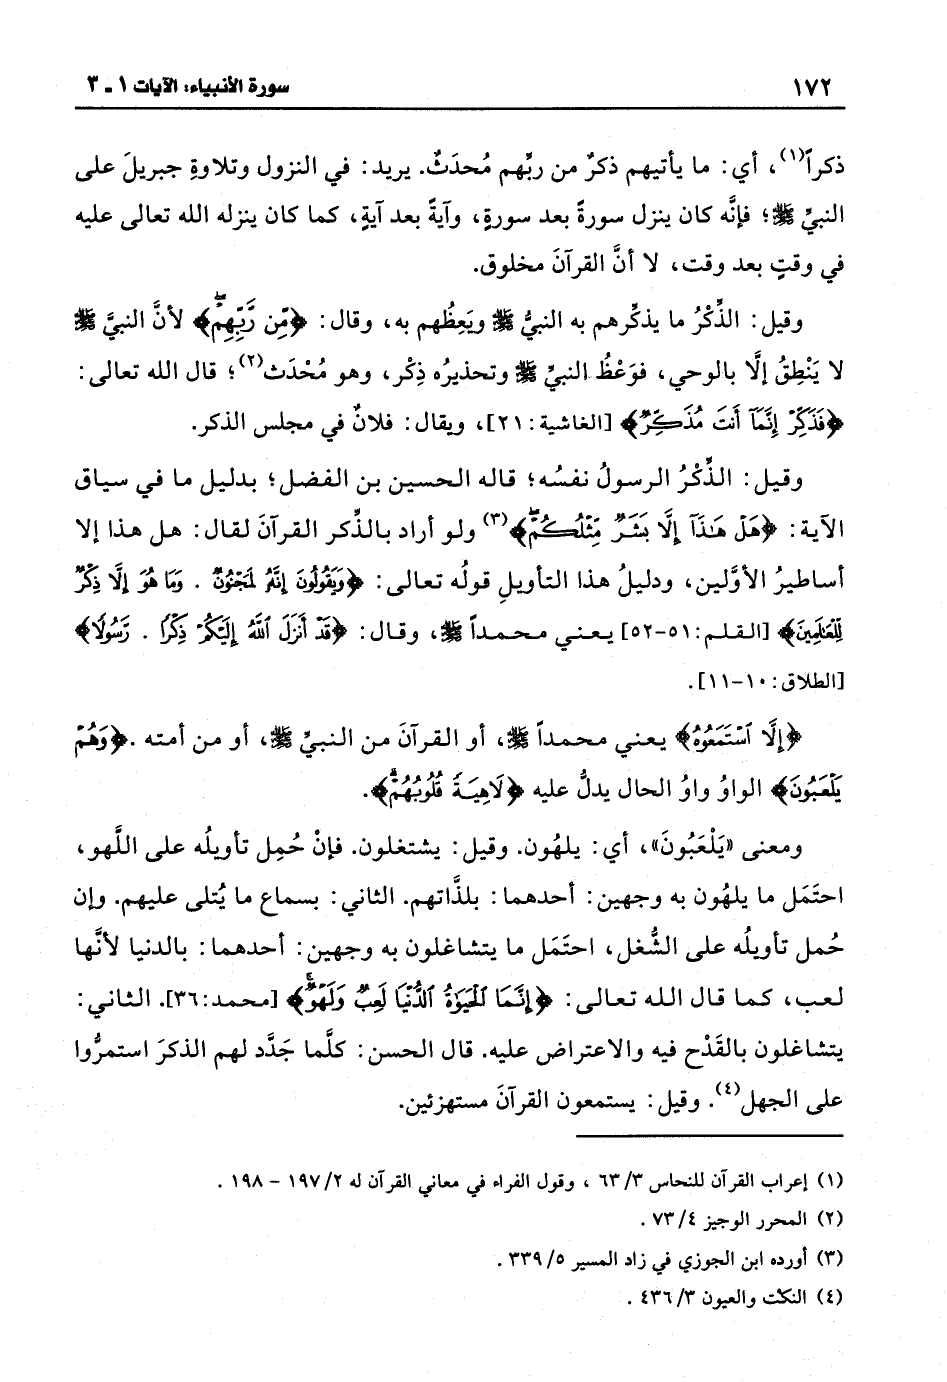 ١٧٢ سورة الأنبياء: الآيات ١ - ٣
ذكراً(١)، أي: ما يأتيهم ذكرٌ من ربِّهم مُحدَثٌ. يريد: في النزول وتلاوةِ جبريلَ على
النبيِّ ﷺ؛ فإنَّه كان ينزل سورةً بعد سورةٍ، وآيةً بعد آيةٍ، كما كان ينزله الله تعالى عليه
في وقتٍ بعد وقت، لا أنَّ القرآنَ مخلوق.
وقيل: الذِّكْرُ ما يذكِّرهم به النبيُّ ﷺ ويَعِظُهم به، وقال: ﴿مِّن رَّبِّهِمْ﴾ لأنَّ النبيَّ ﷺ
لا يَنْطِقُ إلَّا بالوحي، فوَعْظُ النبيِّ ﷺ وتحذيرُه ذِكْر، وهو مُحْدَث(٢)؛ قال الله تعالى:
﴿فَذَكِّرْ إِنَّمَآ أَنتَ مُذَكِّرٌ﴾ [الغاشية: ٢١]، ويقال: فلانٌ في مجلس الذكر.
وقيل: الذِّكْرُ الرسولُ نفسُه؛ قاله الحسين بن الفضل؛ بدليل ما في سياق
الآية: ﴿هَلْ هَٰذَآ إِلَّا بَشَرٌ مِّثْلُكُمْ﴾(٣) ولو أراد بالذِّكر القرآنَ لقال: هل هذا إلا
أساطيرُ الأوَّلين، ودليلُ هذا التأويلِ قولُه تعالى: ﴿وَيَقُولُونَ إِنَّهُۥ لَمَجْنُونٌ . وَمَا هُوَ إِلَّا ذِكْرٌ
لِّلْعَٰلَمِينَ﴾ [القلم: ٥١-٥٢] يعني محمداً ﷺ، وقال: ﴿قَدْ أَنزَلَ ٱللَّهُ إِلَيْكُمْ ذِكْرًا . رَّسُولًا﴾
[الطلاق: ١٠-١١].
﴿إِلَّا ٱسْتَمَعُوهُ﴾ يعني محمداً ﷺ، أو القرآنَ من النبيِّ ﷺ، أو من أمته. ﴿وَهُمْ
يَلْعَبُونَ﴾ الواوُ واوُ الحال يدلُّ عليه ﴿لَاهِيَةً قُلُوبُهُمْ﴾.
ومعنى «يَلْعَبُونَ»، أي: يلهُون. وقيل: يشتغلون. فإنْ حُمِل تأويله على اللَّهو،
احتَمَل ما يلهُون به وجهين: أحدهما: بلذَّاتهم. الثاني: بسماع ما يُتلى عليهم. وإن
حُمل تأويلُه على الشُّغل، احتَمَل ما يتشاغلون به وجهين: أحدهما: بالدنيا لأنَّها
لعب، كما قال الله تعالى: ﴿إِنَّمَا ٱلْحَيَوٰةُ ٱلدُّنْيَا لَعِبٌ وَلَهْوٌ﴾ [محمد: ٣٦]. الثاني:
يتشاغلون بالقَدْح فيه والاعتراض عليه. قال الحسن: كلَّما جَدَّد لهم الذكرَ استمرُّوا
على الجهل(٤). وقيل: يستمعون القرآنَ مستهزئين.
(١) إعراب القرآن للنحاس ٦٣/٣ ، وقول الفراء في معاني القرآن له ١٩٧/٢ - ١٩٨ .
(٢) المحرر الوجيز ٧٣/٤ .
(٣) أورده ابن الجوزي في زاد المسير ٣٣٩/٥ .
(٤) النكت والعيون ٤٣٦/٣ .